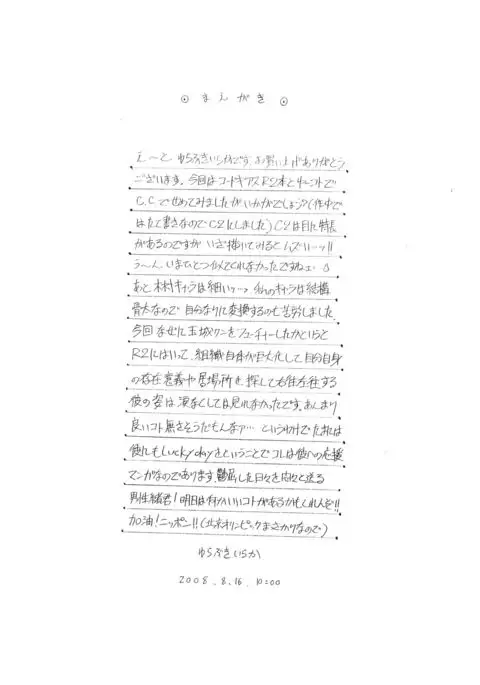 まえがき
え〜と ゆらぶきいちかです。お買い上げありがとう
ございます。今回はコードギアスR2本と
C.C.でせめてみましたがいかがでしょう?(作中で
はたて書きなのでC2にしました)C2は目に特長
があるのですが いざ描いてみるとムズい…ッ!!
う〜ん、いまひとつ似てくれなかったですねェ…
あと木村キャラは細いッ…私のキャラは結構
骨太なので 自分なりに変換するのも苦労しました。
今回なぜに玉城クンをフューチャーしたかというと
R2にはいって、組織自体が巨大化して自分自身
の存在意義や居場所を探して右往左往する
彼の姿は涙なくしては見れなかったです。あんまり
良いコト無さそうだもんなァ… というわけでたまには
彼にもLucky dayをということでコレは彼への応援
マンガなのであります。した日々を送る
男性諸君!明日は何かいいコトがあるかもしれんぞ!!
加油!ニッポン!!(北京オリンピックまっさかりなので)
ゆらぶきいちか
2008.8.16. 10:00